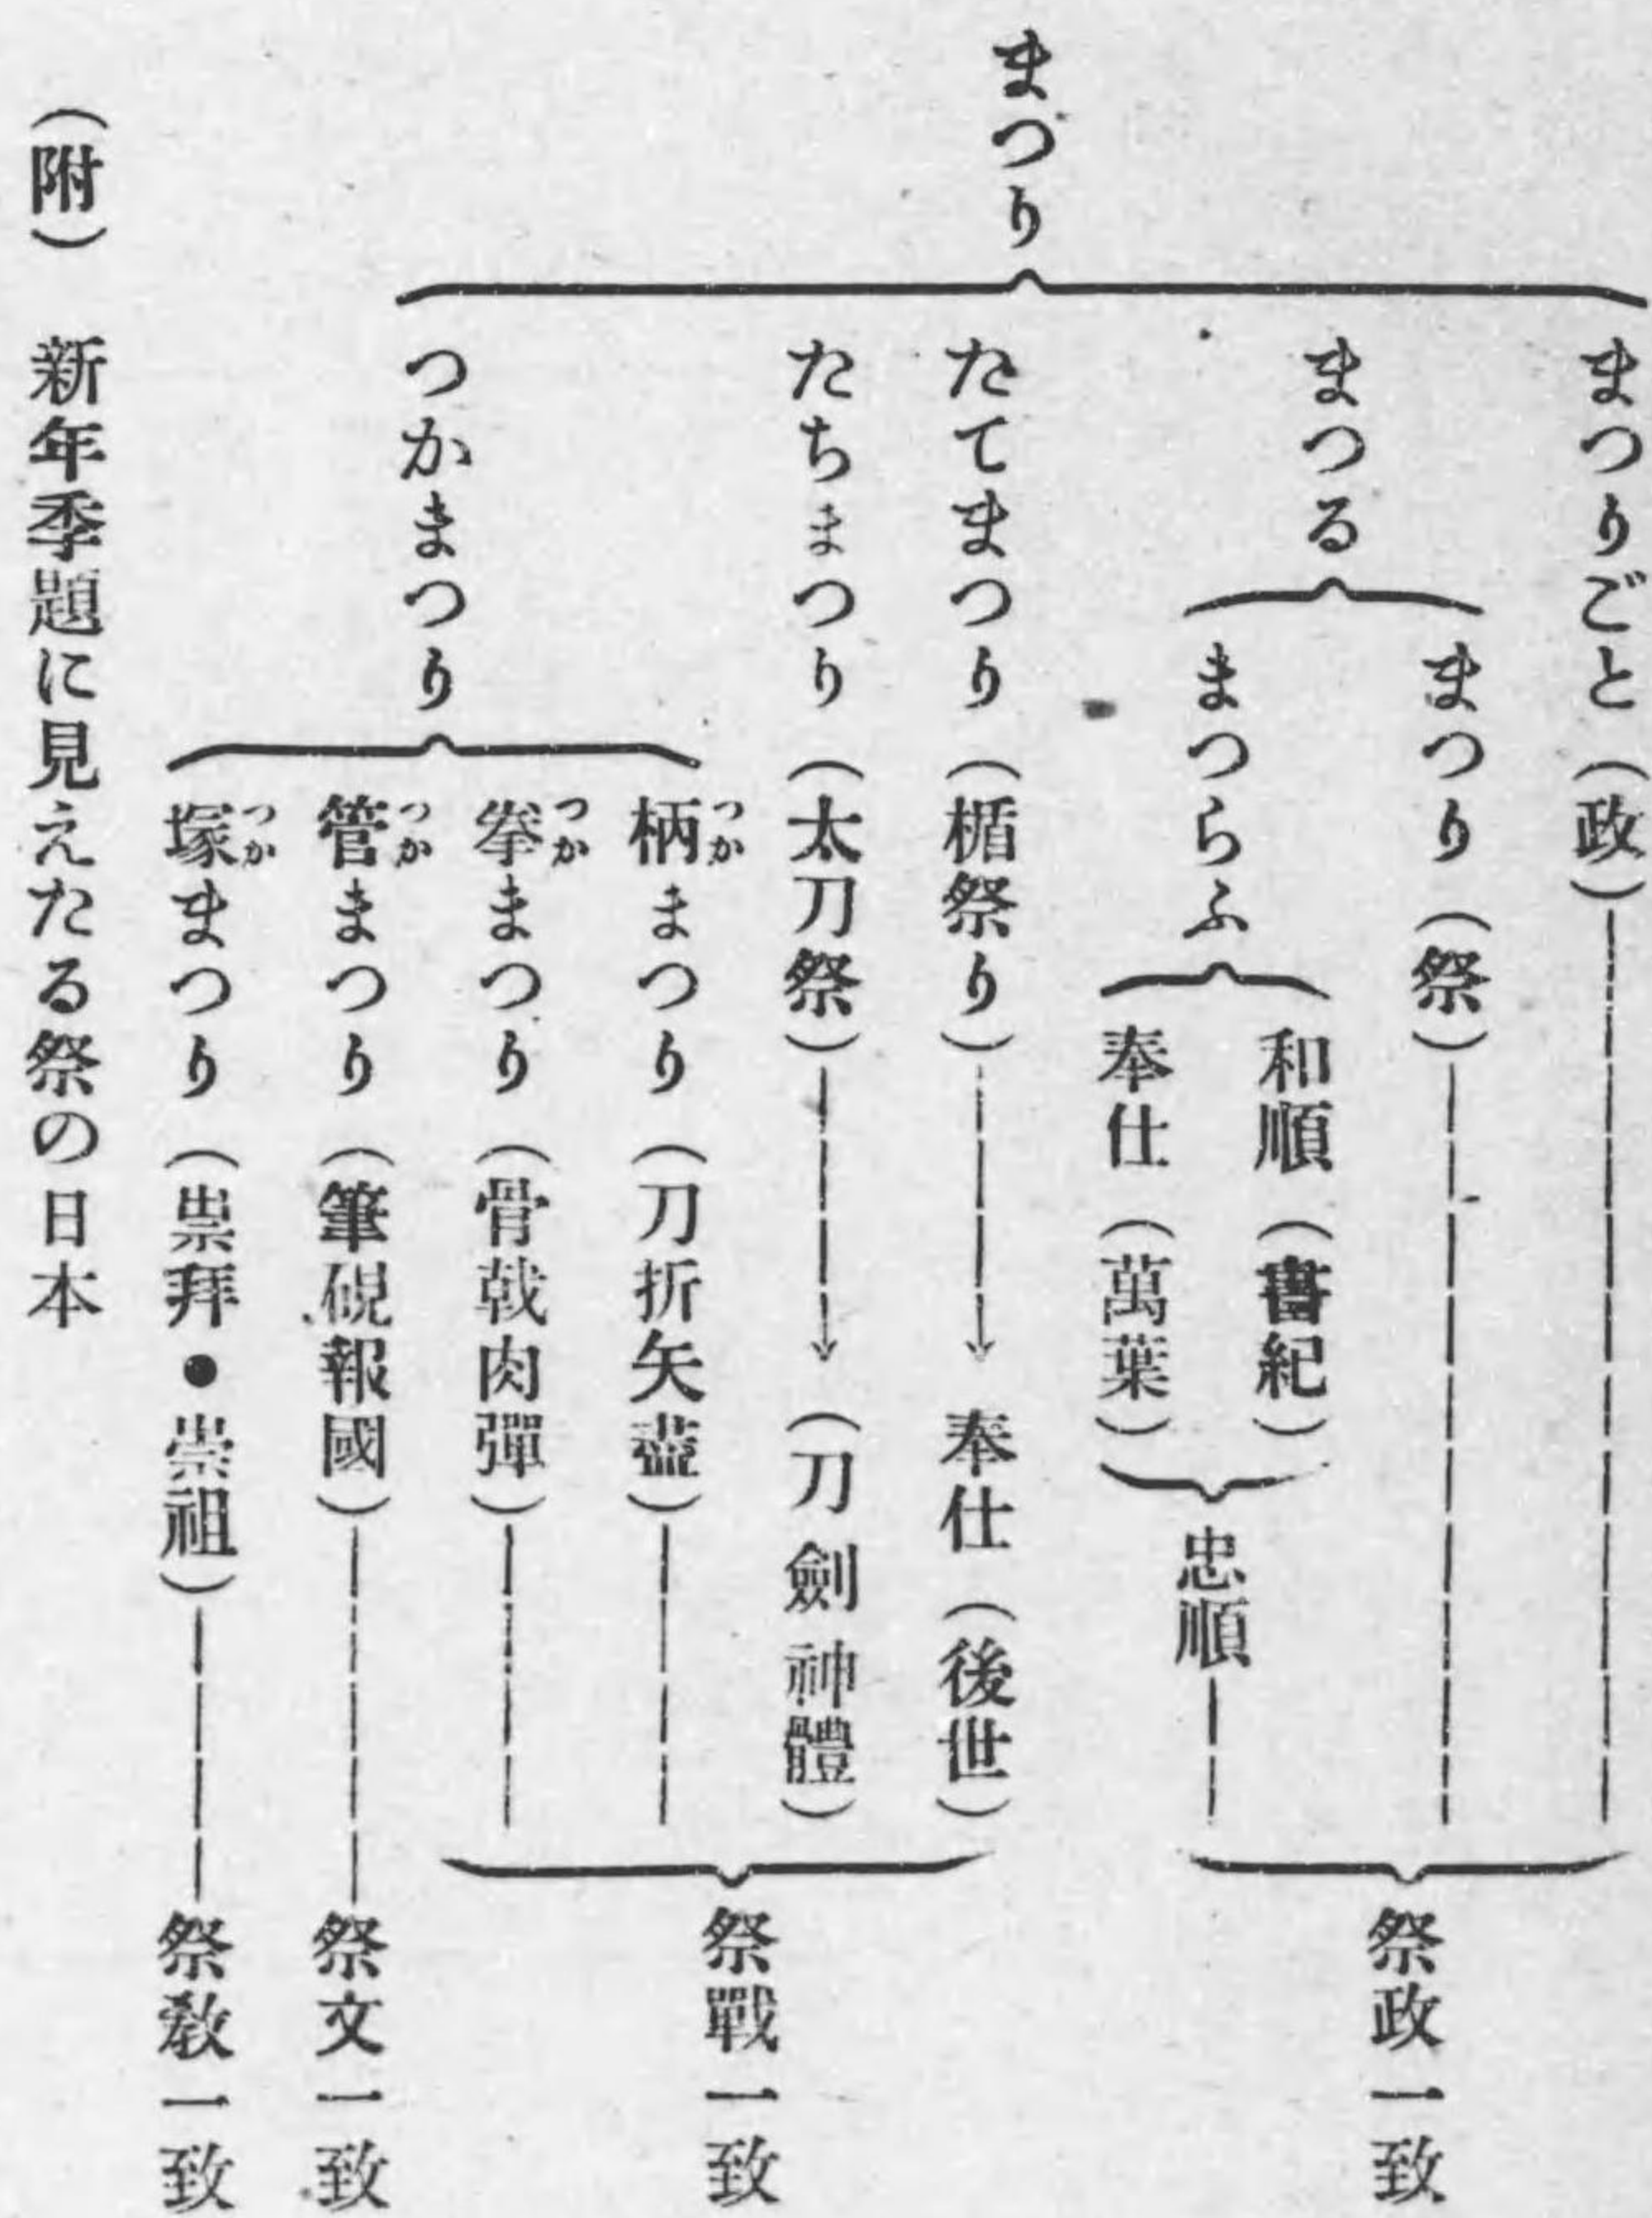 まつり
まつりごと(政)
まつる
まつり(祭)
まつらふ
和順(書紀)
奉仕(萬葉)
忠順
祭政一致
たてまつり(楯祭り)
奉仕(後世)
たちまつり(太刀祭)
(刀劍神體)
つかまつり
柄まつり(刀折矢盡)
つか
拳まつり(骨戟肉彈)
つか
祭戰一致
管まつり(筆硯報國)
つか
祭文一致
塚まつり(祟拜●崇祖)
つか
祭教一致
(附) 新年季題に見えたる祭の日本